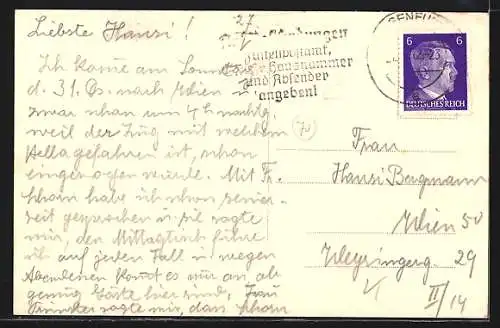 Liebste Hansi!
27
Ich komme am Sonntag
d. 31. Os. nach Wien
zwar schon um 4 h nachtg,
weil der Zug mit welchem
Hella gefahren ist, schon
eingezogen wurde. Mit Fr.
habe ich schon seiner-
zeit gesprochen u. sie sagte
mir, den Mittagtisch führe
ich auf jeden Fall u. wegen
Abendessen kommt es nur an, ob
genug Gäste hier sind. Frau
sagte mir, dass
Postsendungen
Zustellpostamt,
Hausnummer
und Absender
angeben!
6 6
DEUTSCHES REICH
Frau
Hansi Bergmann
Wien 50
Weyringerg. 29
II/14